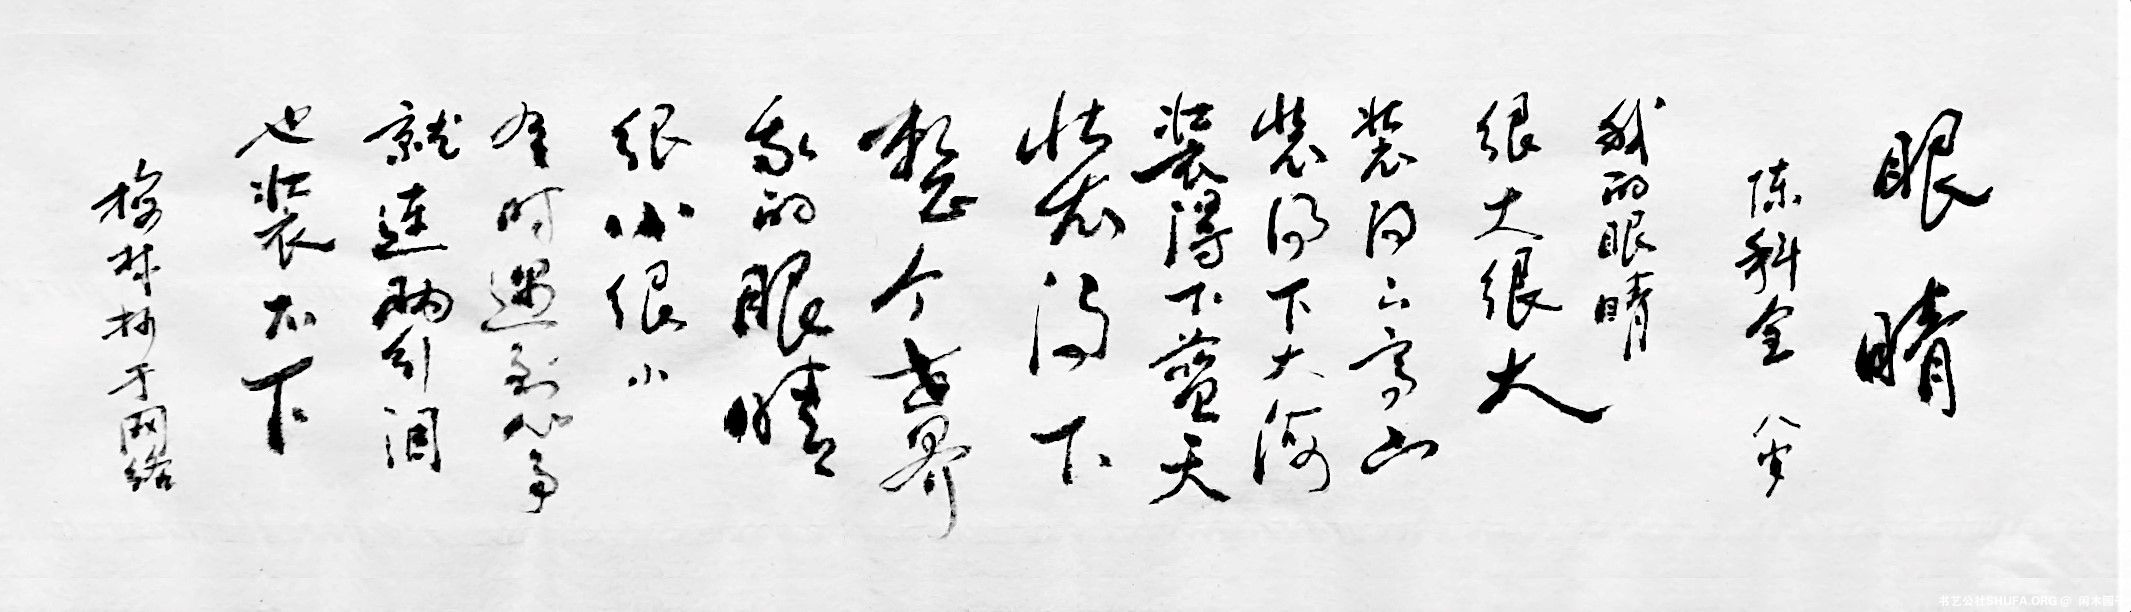 眼睛
陈科全 八岁
我的眼睛
很大很大
装得下高山
装得下大海
装得下蓝天
装得下
整个世界
我的眼睛
很小很小
有时遇到心事
就连两行泪
也装不下
林抄于网络
书艺公社SHUFA.ORG @